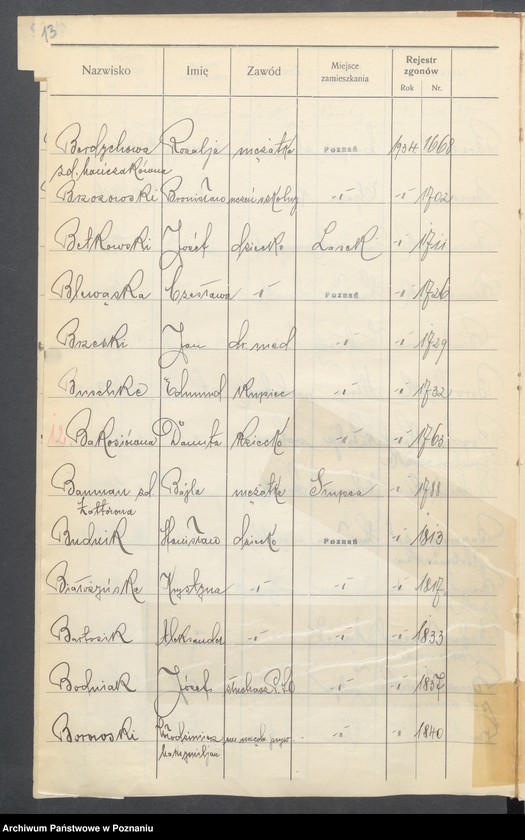 13
Nazwisko Imię Zawód Miejsce zamieszkania Rejestr zgonów
Rok Nr.
Berdychowa Rozalja mężatka Poznań 1934 1668
zd.
Brzozowski Bronisław uczeń szkolny -"- -"- 1702
Betkowski Józef dziecko Lasek -"- 1711
Blewąska Czesława -"- Poznań -"- 1726
Brzeski Jan dr. med -"- -"- 1729
Buschke Edmund kupiec -"- -"- 1732
12 Bakosiówna Danuta dziecko -"- -"- 1763
Bauman zd. Bajla mężatka Słupca -"- 1788
Budnik Stanisław dziecko Poznań -"- 1813
Krystyna -"- -"- -"- 1817
Bartosik Aleksander -"- -"- -"- 1833
Bodniak Józef -"- -"- 1837
Bornoski Włodzimierz -"- -"- 1840
Archiwum Państwowe w Poznaniu